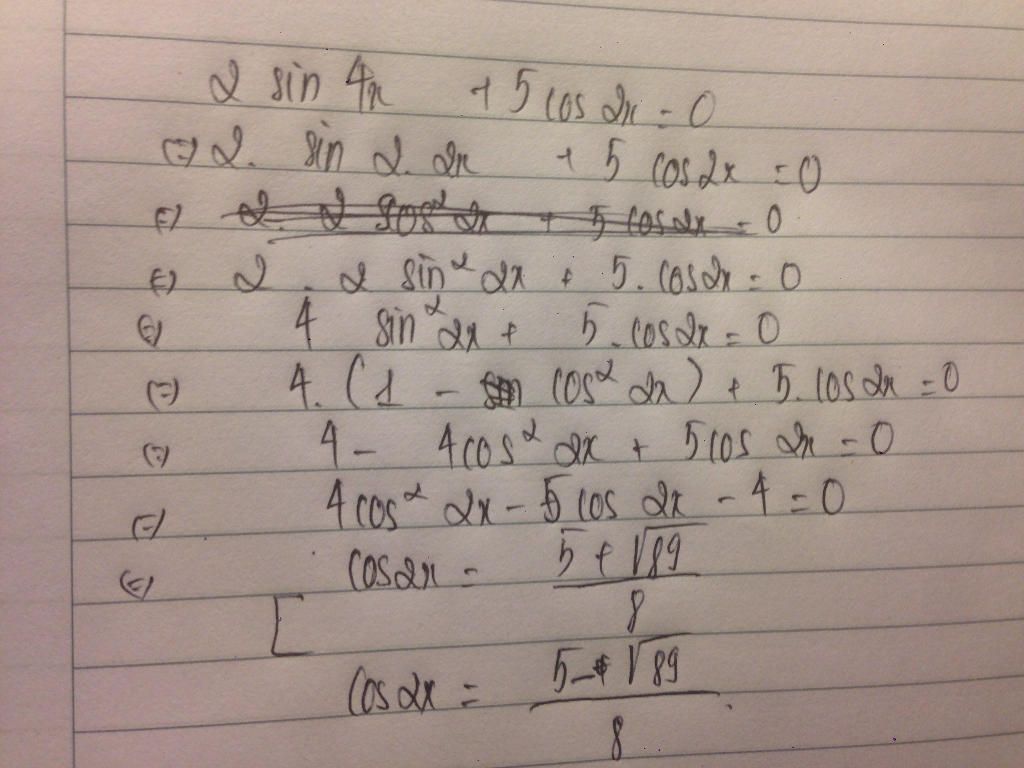 2 sin 4x + 5 cos 2x = 0
(=) 2. sin 2. 2x + 5 cos2x = 0
(=) 2. 2 cos² 2x + 5 cos2x = 0
(=) 2 . 2 sin² 2x + 5. cos2x = 0
(=) 4 sin² 2x + 5. cos2x = 0
(=) 4. (1 - cos² 2x) + 5. cos 2x = 0
(=) 4 - 4cos² 2x + 5cos 2x = 0
(=) 4cos² 2x - 5 cos 2x - 4 = 0
(=) [ cos2x = (5 + √89)/8
cos2x = (5 - √89)/8.